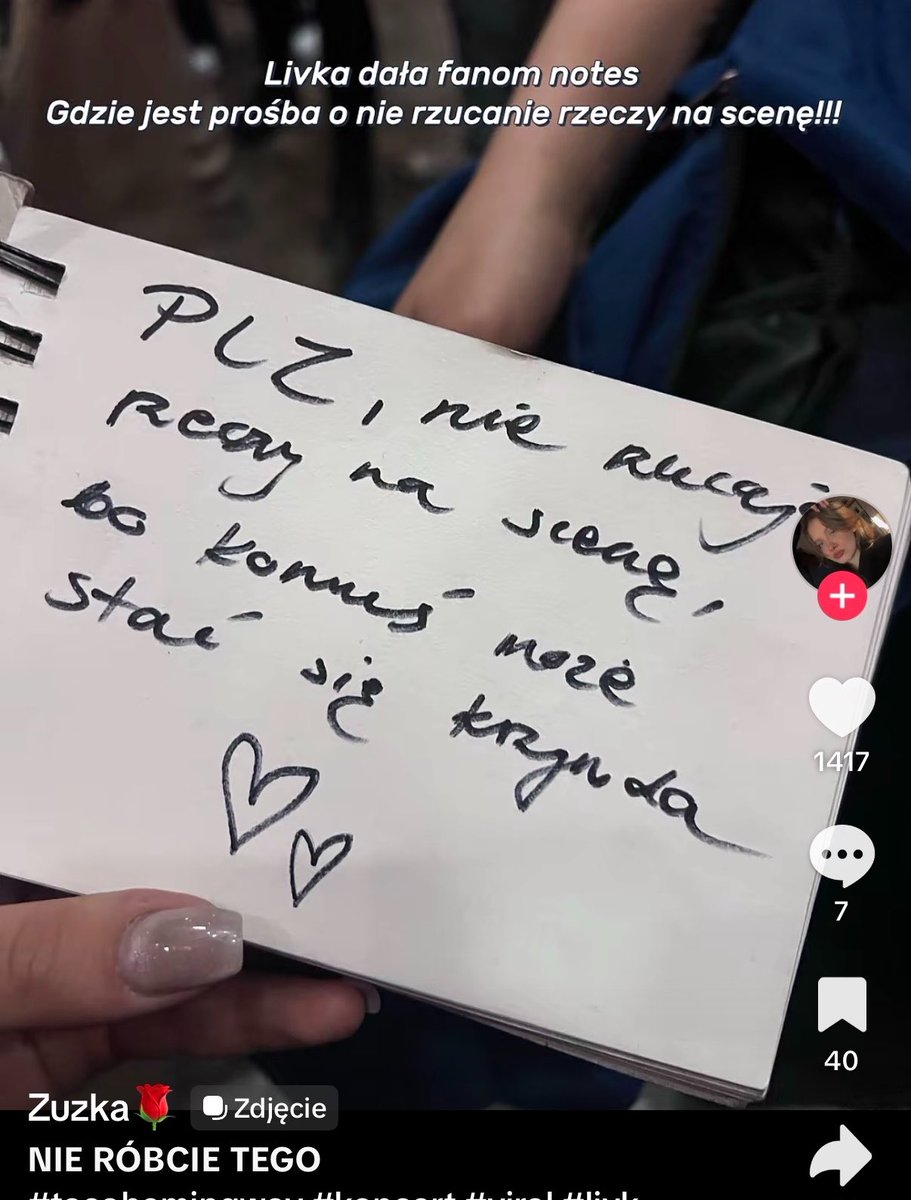 Livka dała fanom notes
Gdzie jest prośba o nie rzucanie rzeczy na scenę!!!
PLZ, nie rzucaj
rzeczy na scenę,
bo komuś może
stać się krzywda
1417
7
40
Zuzka🌹 Zdjęcie
NIE RÓBCIE TEGO